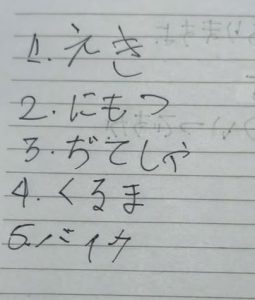 1. えき
2. にもつ
3. ぢてしゃ
4. くるま
5. バイク